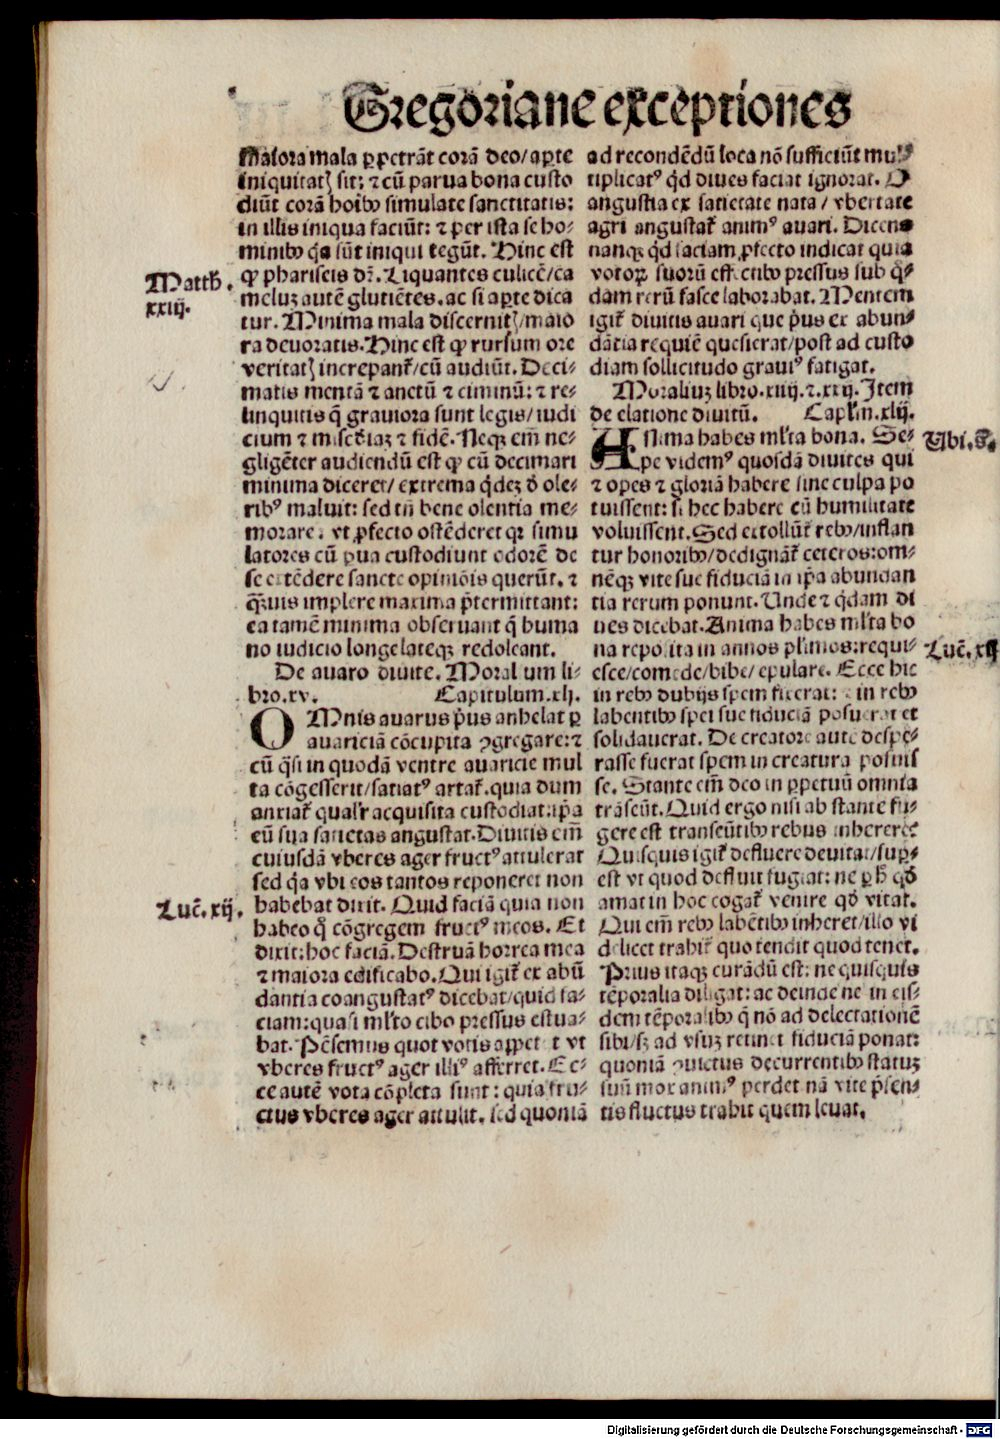 Gregoriane exceptiones
Maiora mala ꝑpetrāt corā deo/aꝑte
iniquitatꝭ sit: ⁊ cū parua bona custo
diūt corā hoībꝰ simulate sanctitatis:
in illis iniqua faciūt: ⁊ per ista se ho-
minibꝰ q̄a sūt iniqui tegūt. Hinc est
ꝙ phariseis dr̄. Liquantes culicē/ca
meluꝫ autē glutiētes. ac si aꝑte dica
tur. Minima mala discernitꝭ/maio
ra deuoratis. Hinc est ꝙ rursum ore
veritatꝭ increpant̄/cū audiūt. Deci-
matis mentā ⁊ anetū ⁊ ciminū: ⁊ re-
linquitis q̄ grauiora sunt legis/iudi
cium ⁊ mis̄cdiaꝫ ⁊ fidē. Neqꝫ em̄ ne-
gligēter audiendū est ꝙ cū decimari
minima diceret/ extrema q̄deꝫ ꝺ̄ ole-
ribꝰ maluit: sed tn̄ bene olentia me-
morare. vt ꝓfecto ostēderet qꝛ simu
latores cū ꝑua custodiunt odorē de
se extēdere sancte opiniōis querūt. ⁊
q̄ꝫuis implere maxima p̄termittant:
ea tamē minima obseruant q̄ huma
no iudicio longe lateqꝫ redoleant.
De auaro diuite. Moralium li-
bro.xv. Capitulum.xlj.
OMnis auarus p̄us anhelat ꝑ
auariciā cōcupita ꝯgregare: ⁊
cū q̄si in quodā ventre auaricie mul
ta cōgesserit/satiatꝰ artat̄. quia dum
anxiat̄ qualr̄ acquisita custodiat: ip̄a
eū sua sacietas angustat. Diuitis em̄
cuiusdā vberes ager fructꝰ attulerat
sed q̄a vbi eos tantos reponeret non
habebat dixit. Quid faciā quia non
habeo q̊ cōgregem fructꝰ meos. Et
dixit: hoc faciā. Destruā horrea mea
⁊ maiora edificabo. Qui igit̄ ex abū
dantia coangustatꝰ dicebat/quid fa-
ciam: quasi ml̄to cibo pressus estua-
bat. Pēsemus quot votis appetijt vt
vberes fructꝰ ager illiꝰ afferret. Ec-
ce autē vota cōpleta sunt: quia fru-
ctus vberes ager attulit. sed quoniā
ad recondēdū loca nō sufficiūt mul-
tiplicatꝰ q̄d diues faciat ignorat. O
angustia ex satietate nata/ vbertate
agri angustat̄ animꝰ auari. Dicens
nanqꝫ q̄d faciam ꝓfecto indicat quia
votoꝝ suorū effectibꝰ pressus sub q̄-
dam rerū fasce laborabat. Mentem
igit̄ diuitis auari que p̄us ex abun-
dātia requiē quesierat/post ad custo
diam sollicitudo grauiꝰ fatigat.
Moraliuꝫ libro.xiiij.⁊.xxij. Item
de elatione diuitū. Caplm̄.xlij.
ANima habes ml̄ta bona. Se-
pe videmꝰ quosdā diuites qui
⁊ opes ⁊ gloriā habere sine culpa po
tuissent: si hec habere cū humilitate
voluissent. Sed extollūt̄ rebꝰ/inflan
tur honoribꝰ/dedignāt̄ ceteros: om-
nēqꝫ vite sue fiduciā in ip̄a abundan
tia rerum ponunt. Unde ⁊ q̄dam di
ues dicebat. Anima habes ml̄ta bo
na reposita in annos pl̄imos: requi-
esce/comede/bibe/epulare. Ecce hic
in rebꝰ dubijs spem fixerat: in rebꝰ
labentibꝰ spei sue fiduciā posuerat et
solidauerat. De creatore autē despe-
rasse fuerat spem in creatura posuis
se. Stante em̄ deo in ꝑpetuū omnia
trāseūt. Quid ergo nisi ab stante fu-
gere est transeūtibꝰ rebus inherere
Quisquis igit̄ defluere deuitat/supꝑ-
est vt quod defluit fugiat: ne ꝑ h̄ qd̄
amat in hoc cogat̄ venire qd̄ vitat.
Qui em̄ rebꝰ labētibꝰ inheret/illo vi
delicet trahit̄ quo tendit quod tenet.
Prius itaqꝫ curādū est: ne quisquis
tēporalia diligat: ac deinde ne in eis-
dem tēporalibꝰ q̄ nō ad delectationē
sibi/sꝫ ad vsuꝫ retinet fiduciā ponat:
quoniā ꝯuictus decurrentibꝰ statuꝫ
suū mox animꝰ perdet nā vite p̄sen-
tis fluctus trahit quem leuat.
Matth.
xxiij.
Luc̄.xij.
Ubi.S.
Luc̄.xij
Digitalisierung gefördert durch die Deutsche Forschungsgemeinschaft - DFG